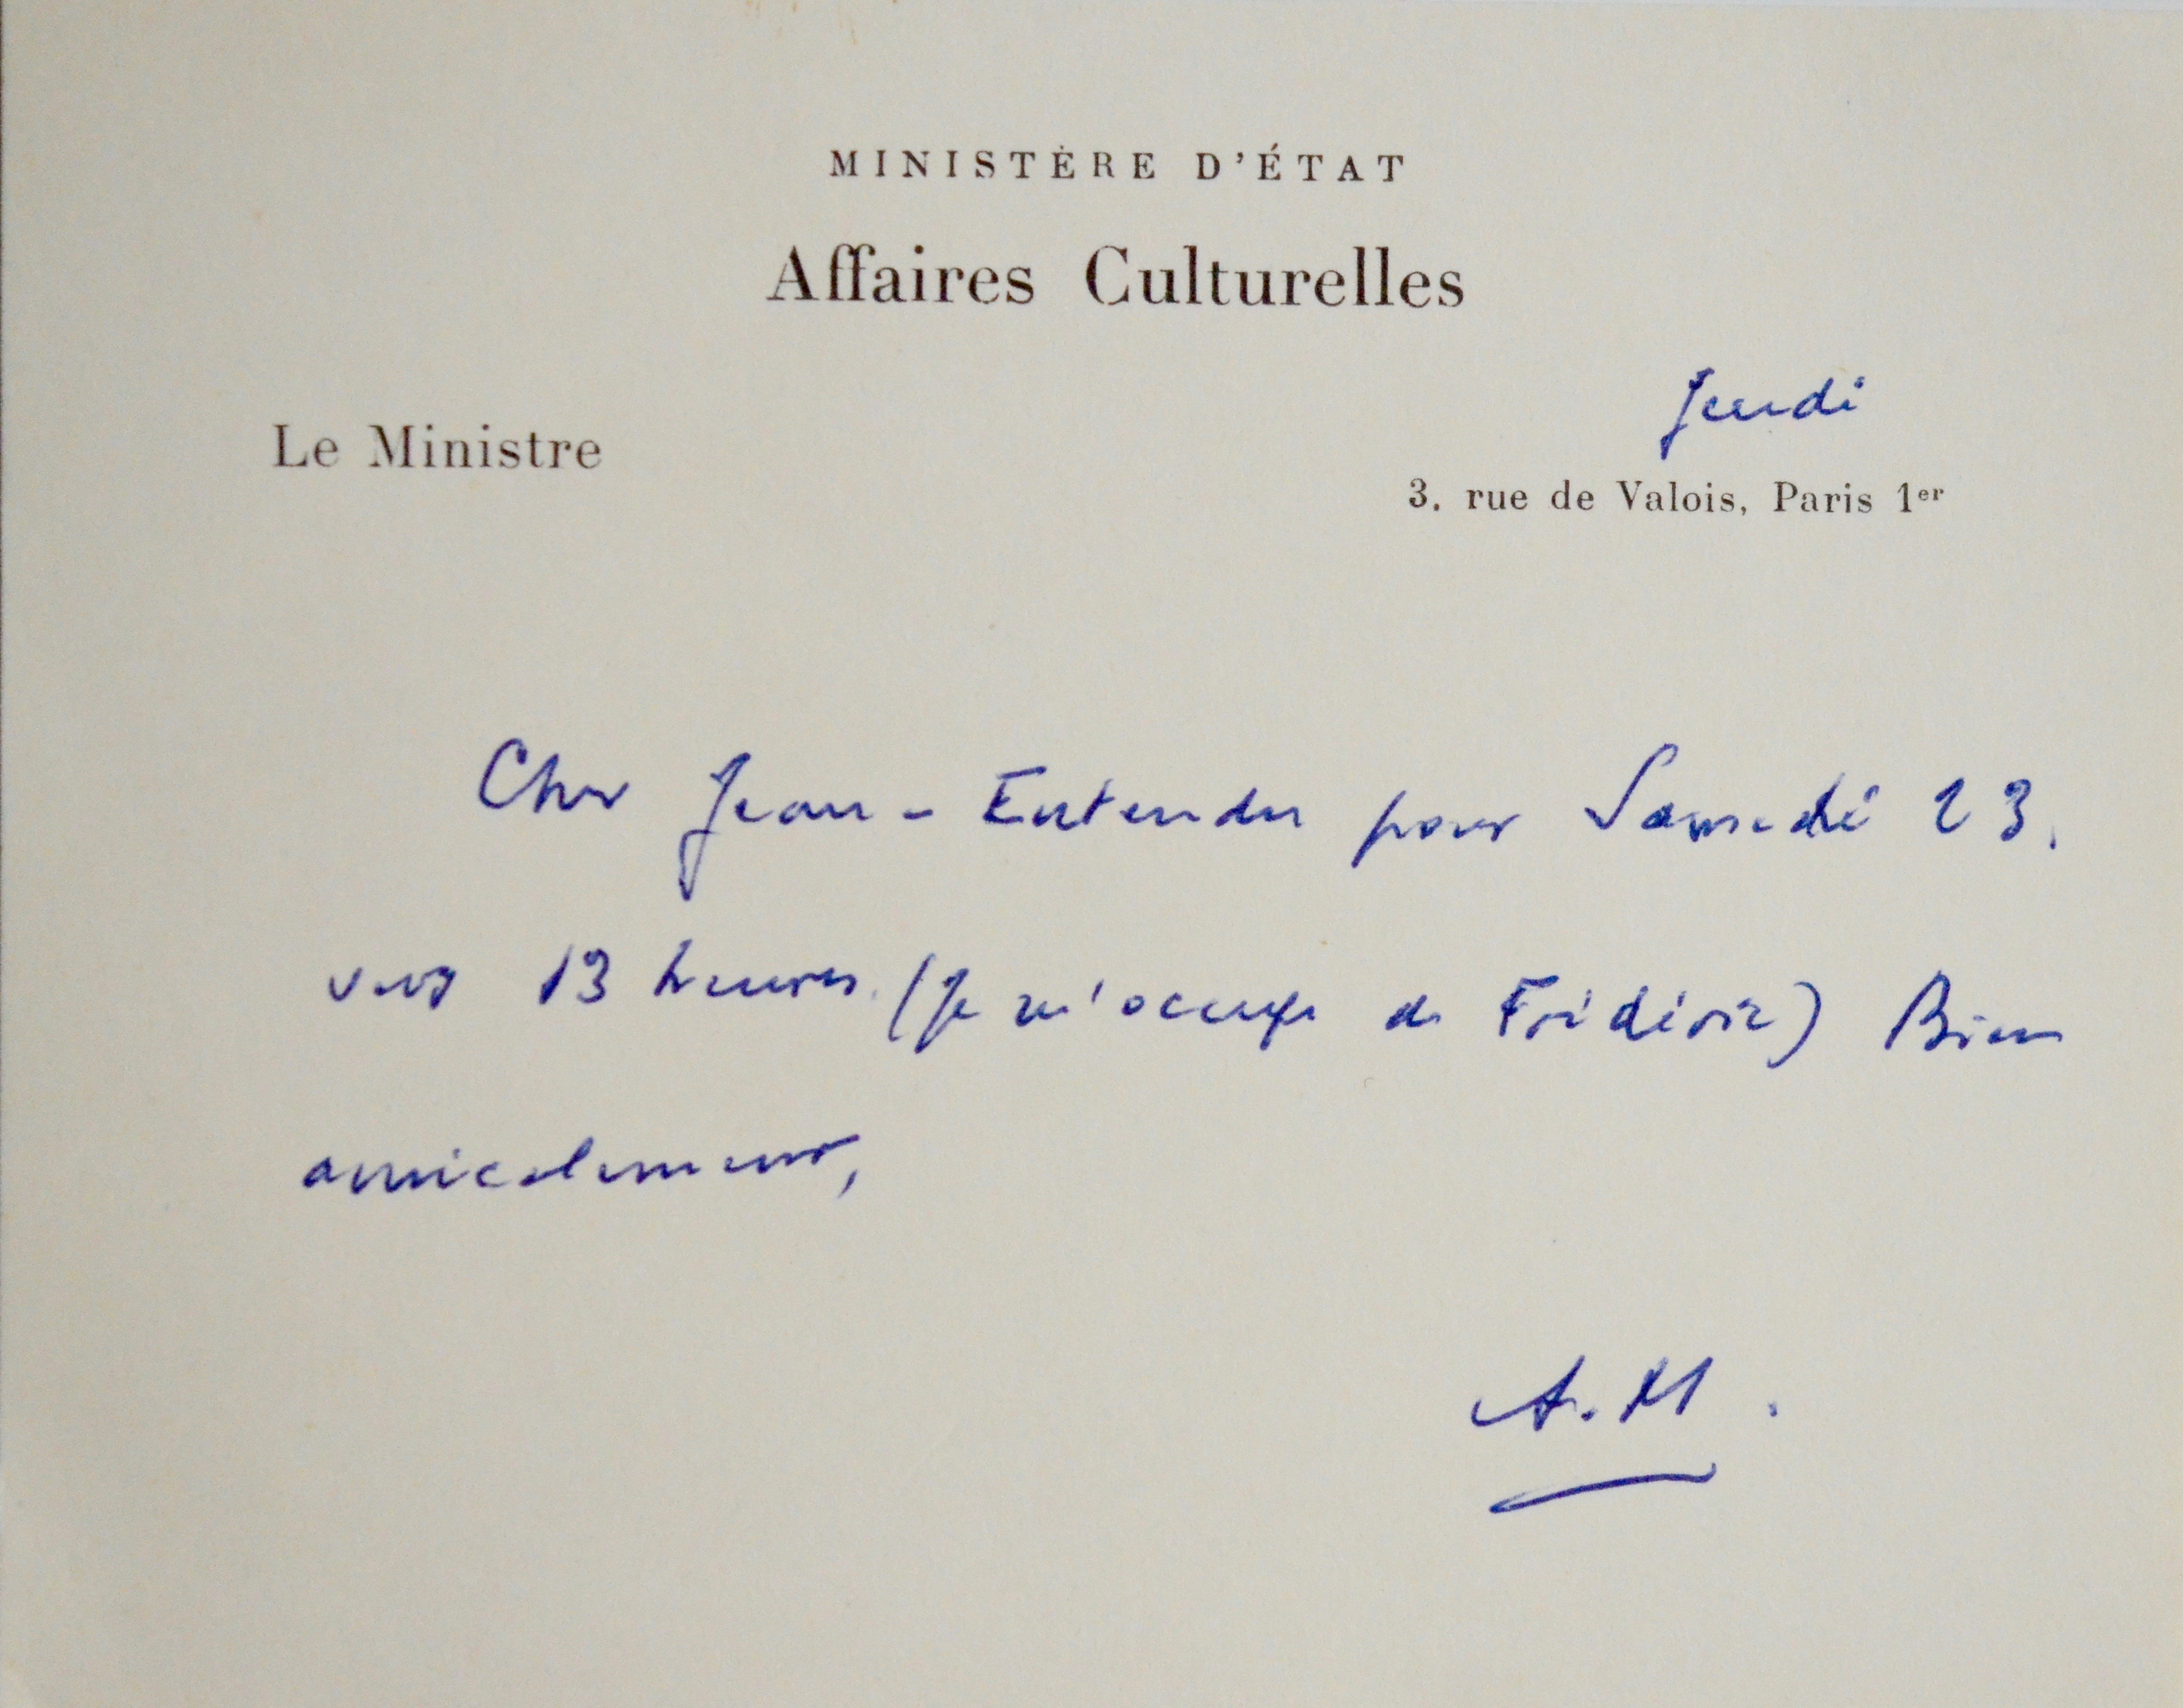 MINISTÈRE D'ÉTAT
Affaires Culturelles
Jeudi
Le Ministre
3, rue de Valois, Paris 1er
Cher Jean - Entendu pour Samedi 23.
vers 13 heures. (Je m'occupe de Frédéric) Bien
amicalement,
A. M.